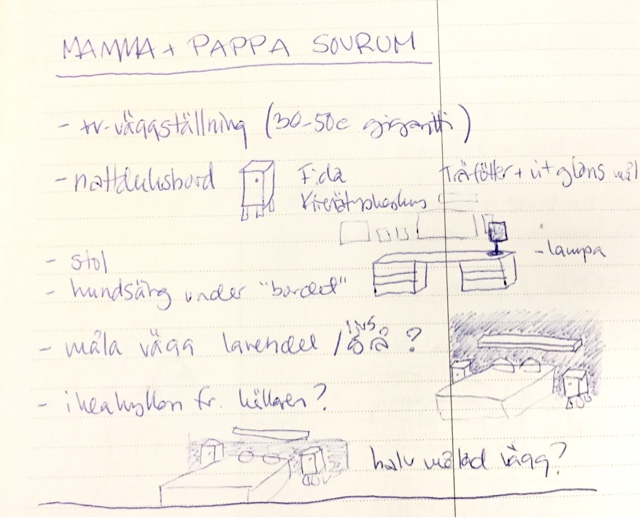 MAMMA + PAPPA SOVRUM
- tv-väggställning (30-50€ gigantti)
- nattduksbord Fida Träfötter + vit glans mål
Kierrätyskeskus
- lampa
- stol
- hundsäng under "bordet"
- måla vägg lavendel / ljus blå?
- ikeahyllon fr. källaren?
halv målad vägg?